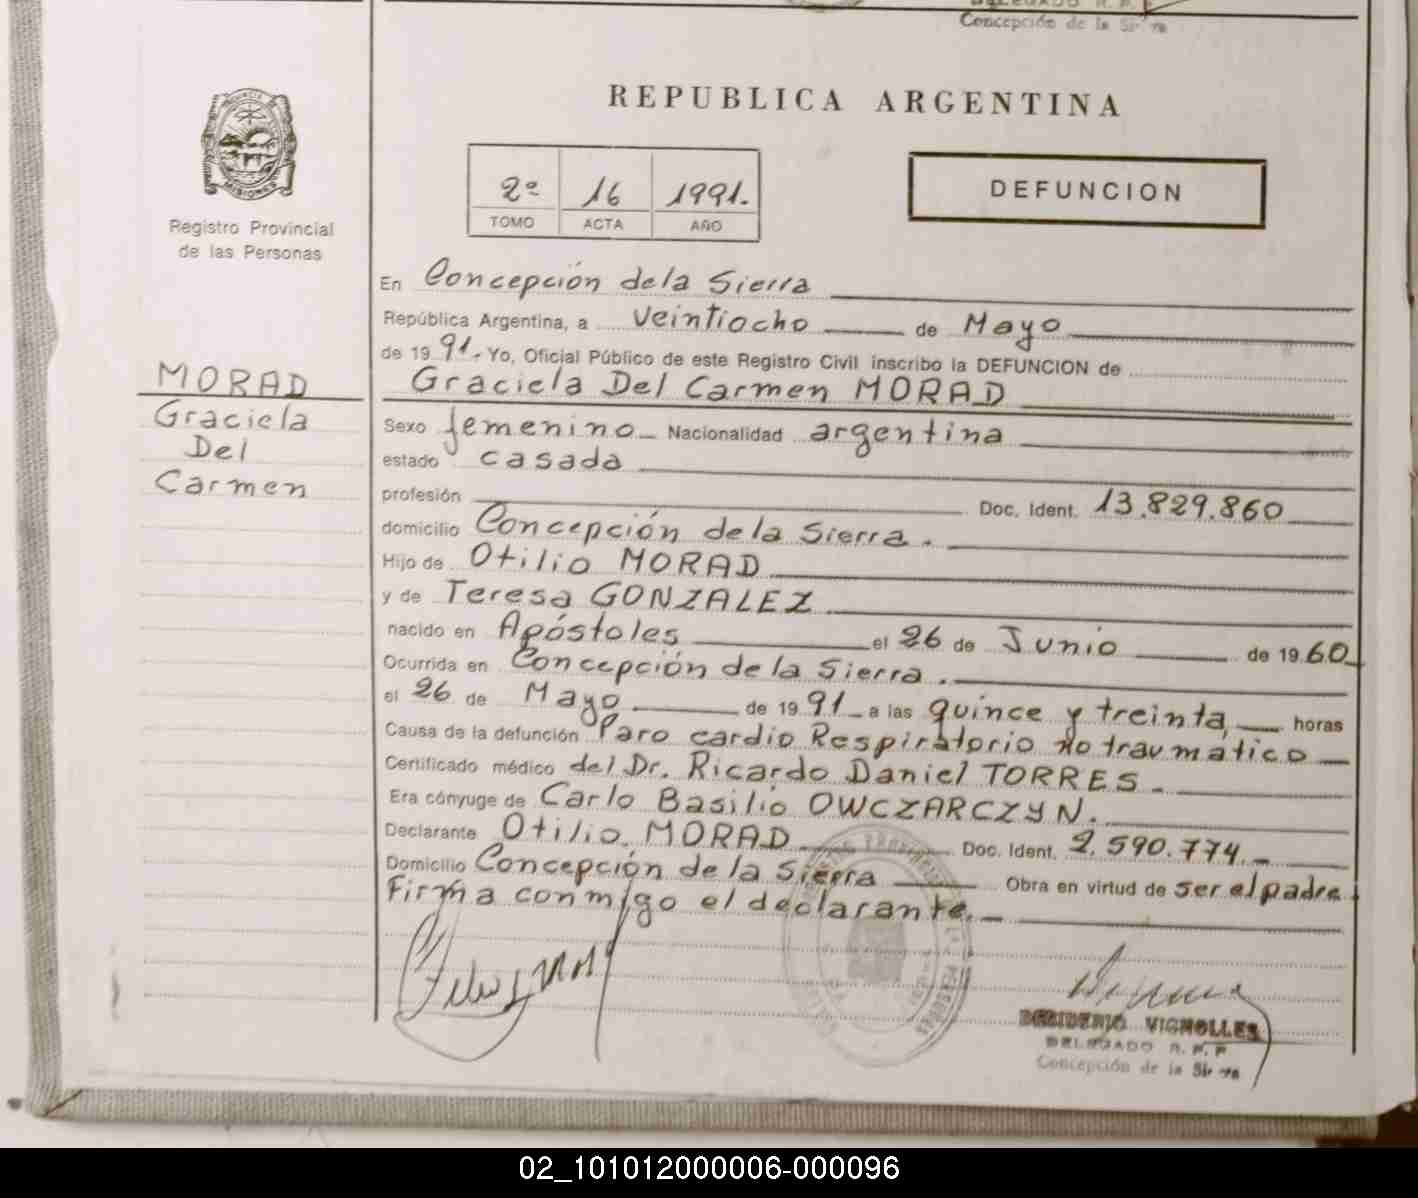 Concepción de la
REPUBLICA ARGENTINA
2º 16 1991.
TOMO ACTA AÑO
DEFUNCION
MISIONES
Registro Provincial
de las Personas
MORAD
Graciela
Del
Carmen
En Concepción de la Sierra
República Argentina, a veintiocho de Mayo
de 1991. Yo, Oficial Público de este Registro Civil inscribo la DEFUNCION de
Graciela Del Carmen MORAD
Sexo femenino Nacionalidad argentina
estado casada
profesión Doc. Ident. 13.829.860
domicilio Concepción de la Sierra.
Hijo de Otilio MORAD
y de Teresa GONZALEZ
nacido en Apóstoles el 26 de Junio de 1960
Ocurrida en Concepción de la Sierra.
el 26 de Mayo de 1991 a las quince y treinta, horas
Causa de la defunción Paro cardio Respiratorio no traumatico
Certificado médico del Dr. Ricardo Daniel TORRES.
Era cónyuge de Carlo Basilio OWCZARCZYN.
Declarante Otilio MORAD Doc. Ident. 2.590.774.
Domicilio Concepción de la Sierra Obra en virtud de ser el padre.
Firma conmigo el declarante.
DESIDERIO VIGNOLLES
DELEGADO R. P. P
Concepción de la
02_101012000006-000096